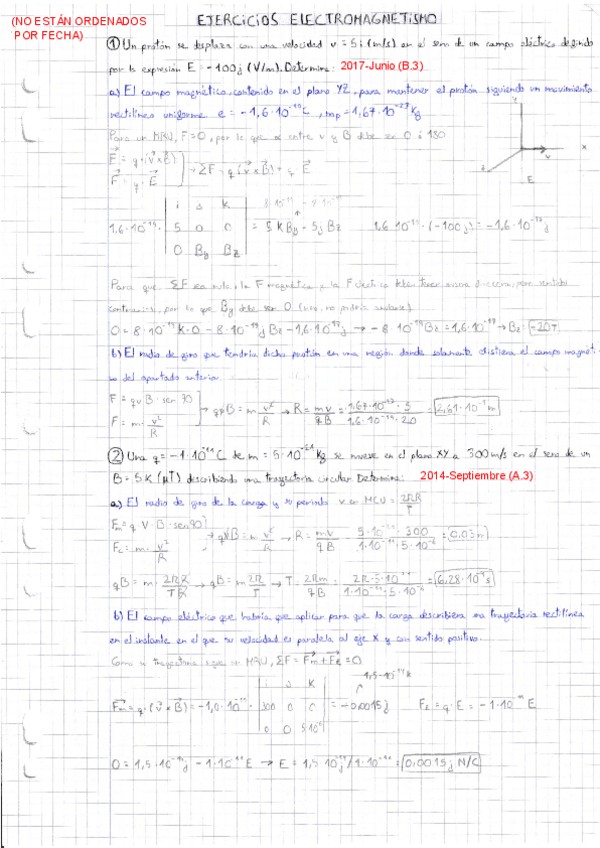 (NO ESTÁN ORDENADOS
POR FECHA)
EJERCICIOS ELECTROMAGNETISMO
① Un protón se desplaza con una velocidad v = 5i (m/s) en el seno de un campo eléctrico definido
por la expresión E = -100j (V/m). Determina: 2017-Junio (B.3)
a) El campo magnético, contenido en el plano YZ, para mantener el protón siguiendo un movimiento
rectilíneo uniforme e = -1,6·10⁻¹⁹C, mp = 1,67·10⁻²⁷Kg
Para un MRU, F=0, por lo que entre v y B debe ser 0 ó 180
F = q·(v×B)
F = q·E
→ ΣF = q(v×B) + q E
1,6·10⁻¹⁹
i j k
5 0 0
0 By Bz
= 5KBy - 5jBz
1,6·10⁻¹⁹·(-100j) = -1,6·10⁻¹⁷j
Para que ΣF sea nula, la F magnética y la F eléctrica debe tener misma dirección, pero sentido
contrario, por lo que By debe ser 0 (sino, no podría anularse)
0 = 8·10⁻¹⁹K·0 - 8·10⁻¹⁹jBz - 1,6·10⁻¹⁷j → -8·10⁻¹⁹Bz = 1,6·10⁻¹⁷ → Bz = -20T
b) El radio de giro que tendría dicho protón en una región donde solamente existiera el campo magnéti-
co del apartado anterior.
F = qvB·sen 90
F = m·v²/R
→ qvB = m v²/R → R = mv/qB = 1,67·10⁻²⁷·5/1,6·10⁻¹⁹·20 = 2,61·10⁻⁹m
② Una q = -1·10⁻¹¹C de m = 5·10⁻²¹Kg se mueve en el plano XY a 300m/s en el seno de un
B = 5K (μT) describiendo una trayectoria circular. Determina: 2014-Septiembre (A.3)
a) El radio de giro de la carga y su periodo v en MCU = 2πR/T
Fm = q·V·B·sen90
Fc = m·v²/R
→ qVB = m v²/R → R = mv/qB = 0,03m
qB = m·2πR/TR → qB = m 2π/T → T = 2πm/qB = 6,28·10⁻⁴s
b) El campo eléctrico que habría que aplicar para que la carga describiera una trayectoria rectilínea
en el instante en el que su velocidad es paralela al eje X y con sentido positivo.
Como su trayectoria sigue un MRU, ΣF = Fm + FE = 0
Fm = q·(v×B) = -1,0·10⁻¹¹
i j k
300 0 0
0 0 5·10⁻⁶
= -0,0015j
FE = q·E = -1·10⁻¹¹E
0 = 1,5·10⁻¹⁴j - 1·10⁻¹¹E → E = 1,5·10⁻¹⁴j/1·10⁻¹¹ = 0,0015j N/C